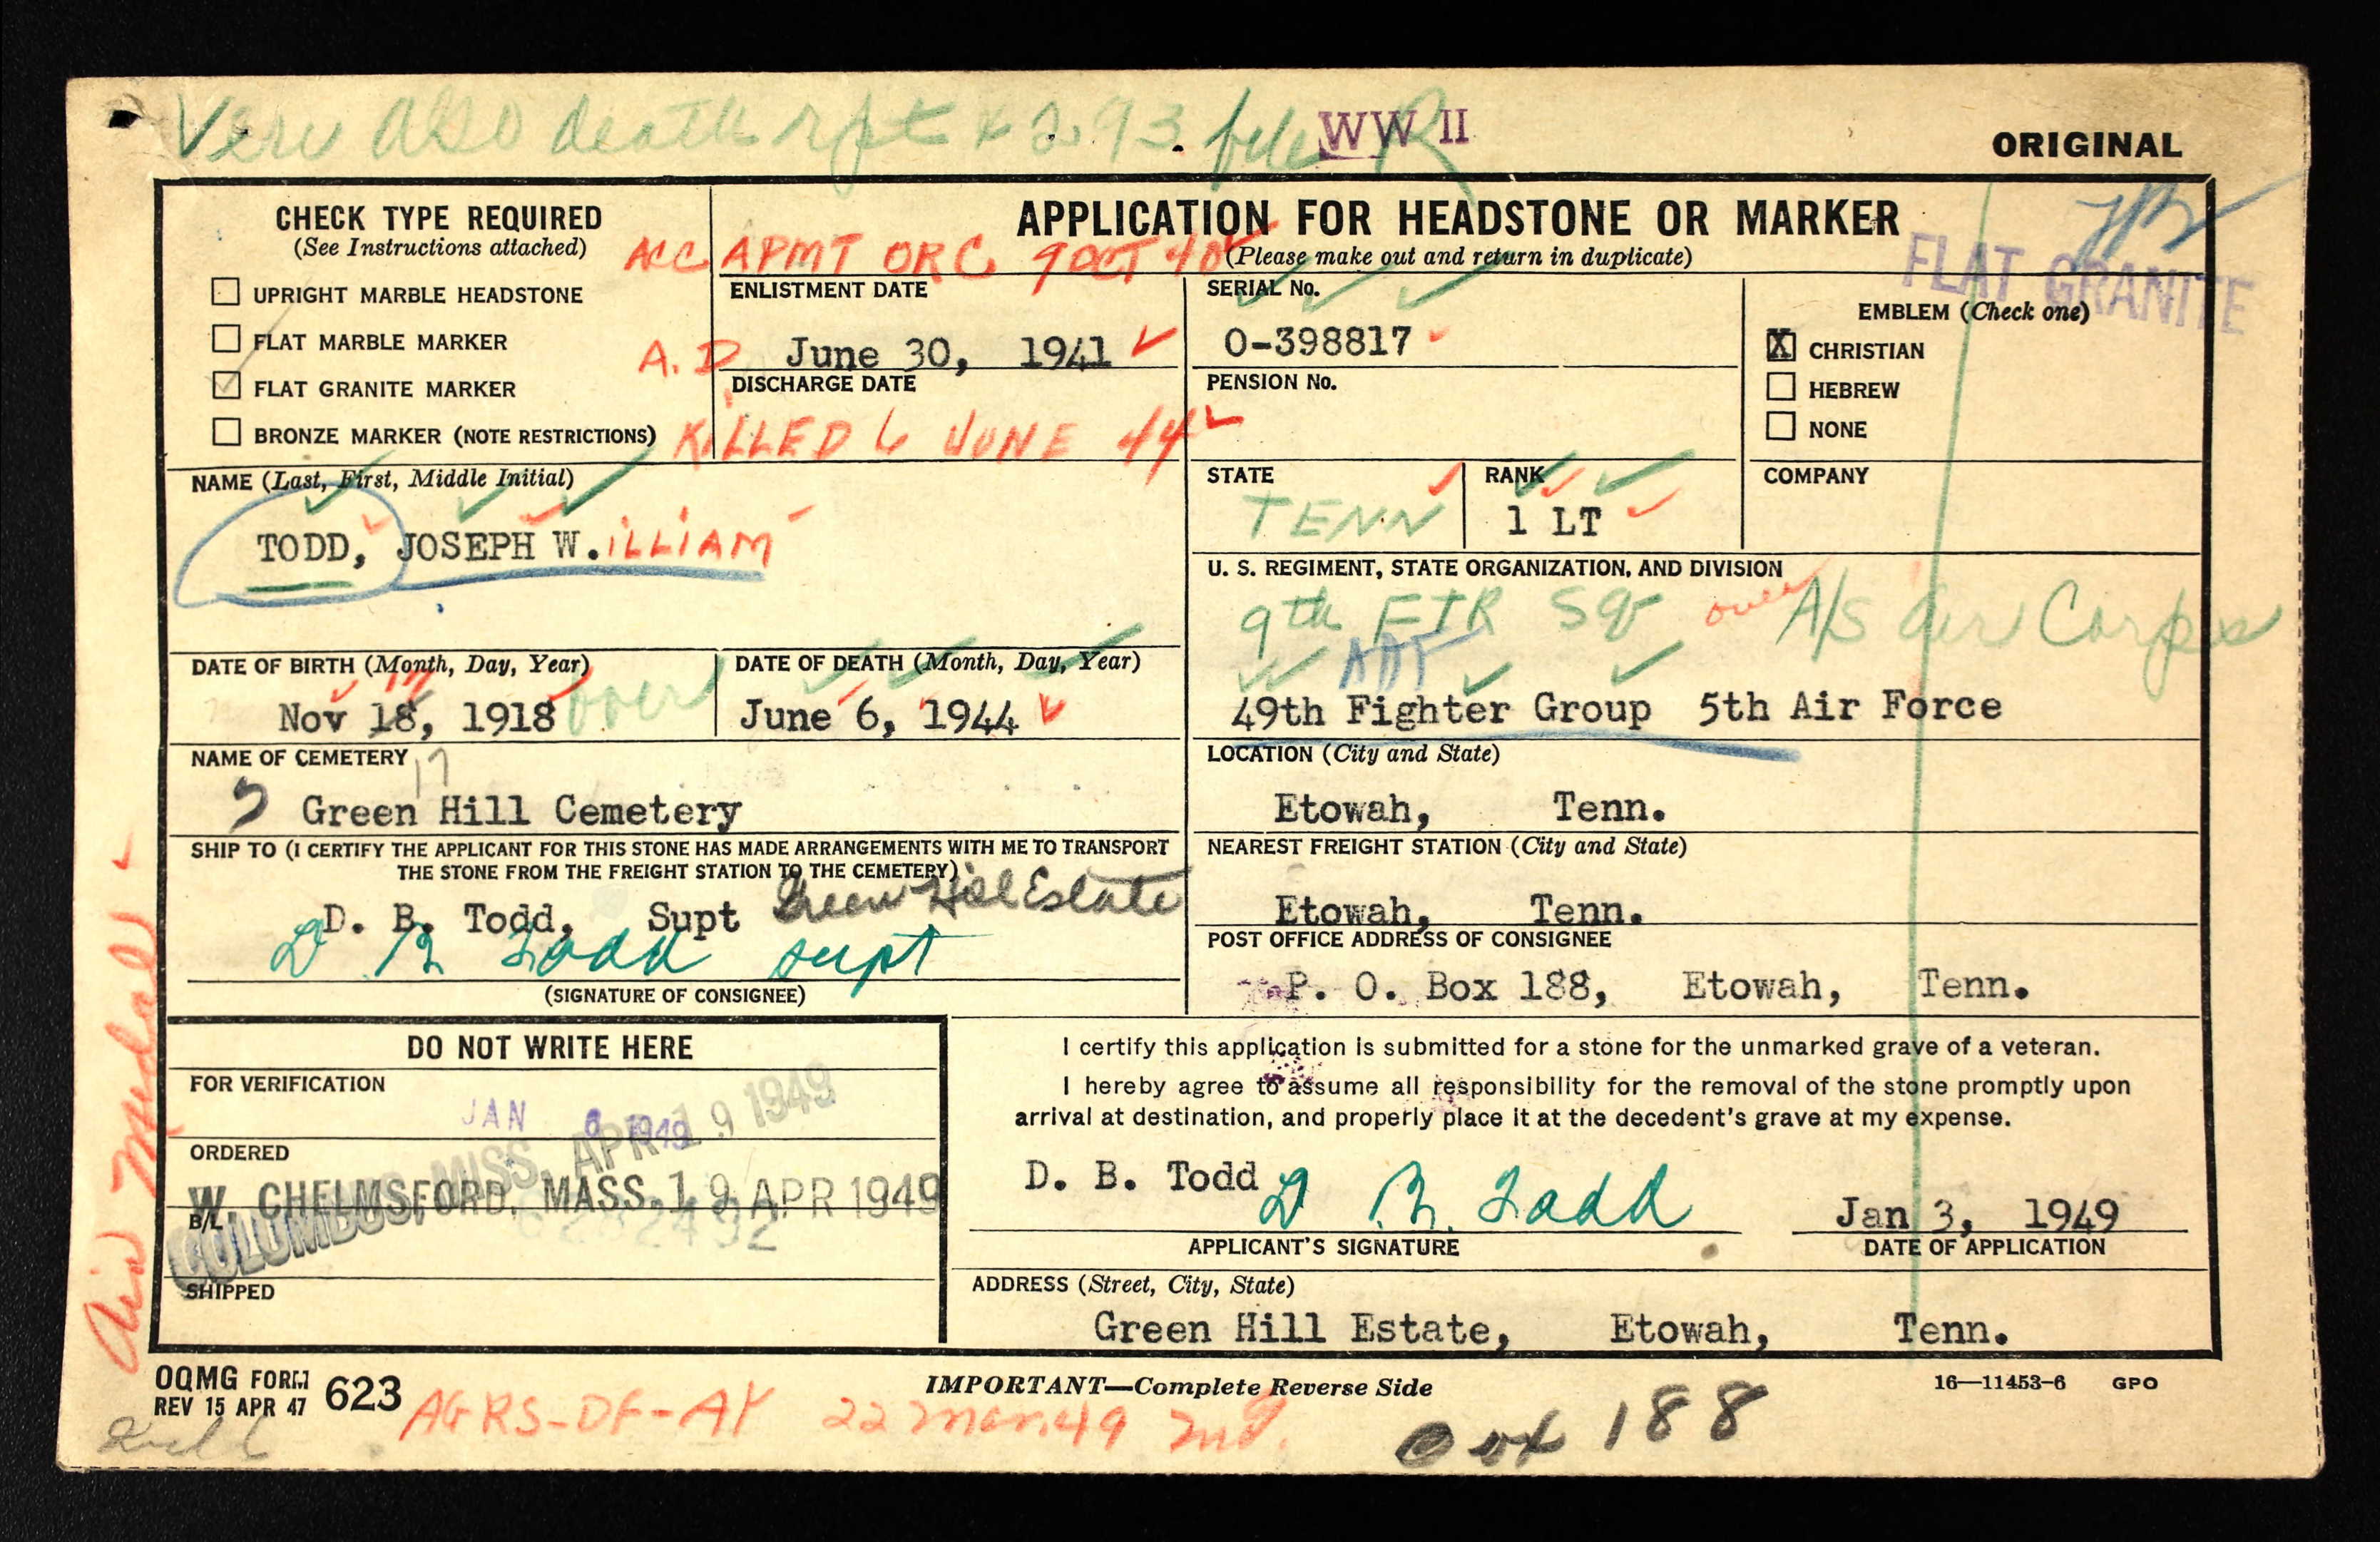 Veru also death rpt & 293 file
WW II
ORIGINAL
CHECK TYPE REQUIRED
(See Instructions attached)
UPRIGHT MARBLE HEADSTONE
FLAT MARBLE MARKER
FLAT GRANITE MARKER
BRONZE MARKER (NOTE RESTRICTIONS)
APPLICATION FOR HEADSTONE OR MARKER
(Please make out and return in duplicate)
ACC APMT ORC 9 OCT 40
FLAT GRANITE
ENLISTMENT DATE
A.D. June 30, 1941
SERIAL No.
O-398817
EMBLEM (Check one)
X CHRISTIAN
HEBREW
NONE
DISCHARGE DATE
KILLED 6 JUNE 44
PENSION No.
NAME (Last, First, Middle Initial)
TODD, JOSEPH W.ILLIAM
STATE
TENN
RANK
1 LT
COMPANY
U. S. REGIMENT, STATE ORGANIZATION, AND DIVISION
9th FTR Sq over A/S Air Corps
AAF
49th Fighter Group 5th Air Force
DATE OF BIRTH (Month, Day, Year)
Nov 18, 1918 over
17
DATE OF DEATH (Month, Day, Year)
June 6, 1944
NAME OF CEMETERY
Green Hill Cemetery
LOCATION (City and State)
Etowah, Tenn.
SHIP TO (I CERTIFY THE APPLICANT FOR THIS STONE HAS MADE ARRANGEMENTS WITH ME TO TRANSPORT
THE STONE FROM THE FREIGHT STATION TO THE CEMETERY)
D. B. Todd, Supt Green Hill Estate
D. B. Todd supt
(SIGNATURE OF CONSIGNEE)
NEAREST FREIGHT STATION (City and State)
Etowah, Tenn.
POST OFFICE ADDRESS OF CONSIGNEE
P. O. Box 188, Etowah, Tenn.
DO NOT WRITE HERE
FOR VERIFICATION
JAN 6 1949
ORDERED
COLUMBUS, MISS. APR 19 1949
W. CHELMSFORD, MASS. 19 APR 1949
B/L
SHIPPED
I certify this application is submitted for a stone for the unmarked grave of a veteran.
I hereby agree to assume all responsibility for the removal of the stone promptly upon
arrival at destination, and properly place it at the decedent's grave at my expense.
D. B. Todd D. B. Todd
APPLICANT'S SIGNATURE
Jan 3, 1949
DATE OF APPLICATION
ADDRESS (Street, City, State)
Green Hill Estate, Etowah, Tenn.
Air Medal
OQMG FORM 623
REV 15 APR 47
IMPORTANT—Complete Reverse Side
16—11453-6 GPO
AGRS-DF-AY 22 Mar. 49
188